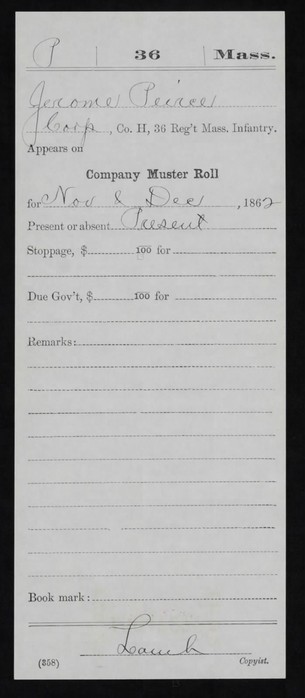 P | 36 | Mass.
Jerome Peirce
Corp, Co. H, 36 Reg't Mass. Infantry.
Appears on
Company Muster Roll
for Nov & Dec, 1862
Present or absent Present
Stoppage, $ 100 for
Due Gov't, $ 100 for
Remarks:
Book mark:
(358) Copyist.